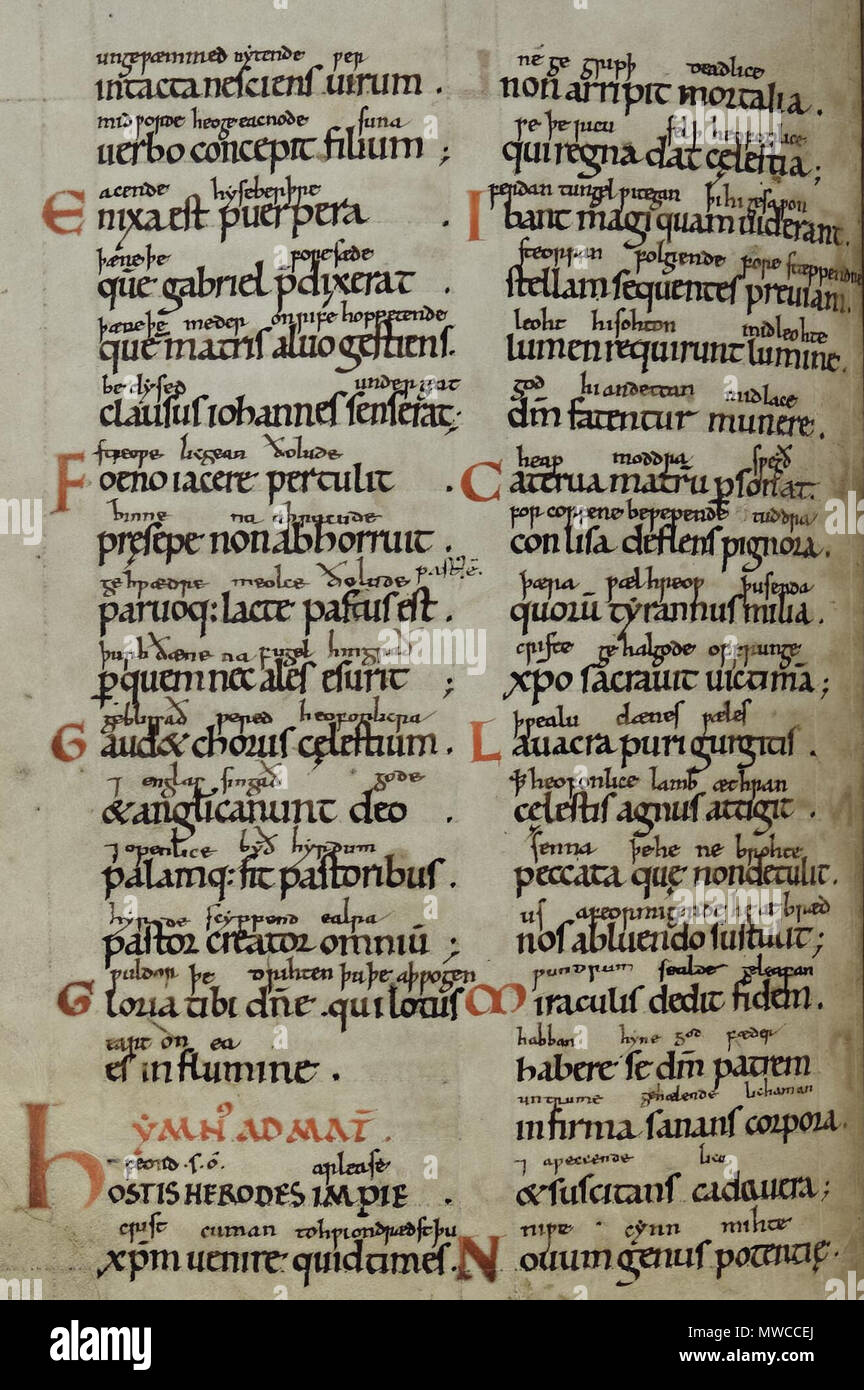 ungeƿæmmed nytende ƿer
intacta nesciens uirum .
mid ƿorde heo geeacnode suna
uerbo concepit filium ;
acende hyseberþre
Enixa est puerpera .
þæne þe foresæde
quē gabriel p̄dixerat .
þæne þe meder onrife hoppetende
quē matris aluo gestiens .
beclysed undergæt
clausus iohannes senserat ;
streoƿe licgean ðolude
Foeno iacere pertulit .
binne na
pręsepe non abhorruit .
gehƿædre meolce ðolude
paruoq: lacte pastus est .
þurh ðæne na fugel hingrað
ꝑ quem nec ales esurit ;
geblissað ƿered heofonlicra
Gaud& chorus cęlestium .
⁊ englas singað gode
& angeli canunt deo .
⁊ openlice byð hyrdum
palamq: fit pastoribus .
hyrde scyppend ealra
pastor creator omniū ;
ƿuldor þe drihten þu þe aþƿogen
Gloria tibi dn̄e . qui lotus
eart on ea
es in flumine .
YMN' AD MAT̄ .
arlease
HOSTIS HERODES IMPIE .
crist cuman to hƿi ondrædst þu
xp̄m uenire quid times .
ne ge gripþ deadlice
non arripit mortalia .
se þe rucu selþ heofonlice
qui regna dat cęlestia ;
ferdan tungelƿitegan þi hi gesaƿon
Ibant magi quam uiderant .
steorran folgende forestæppendne
stellam sequentes preuiam .
leoht hi sohton mid leohte
lumen requirunt lumine .
god hi andettan mid lace
dm̄ fatentur munere .
heap moddra sƿegð
Caterua matrū ꝑsonat .
forcorfene beƿepende tuddra
conlisa deflens pignora .
þæra ƿælhreoƿ þusenda
quorū tyrannus milia .
criste gehalgode offrunge
xpo sacrauit uictimā ;
þƿealu dænes ƿæles
Lauacra puri gurgitis .
þ heofonlice lamb æthran
cęlestis agnus attigit .
senna þe he ne brohte
peccata quę non detulit .
us
nos abluendo sustulit ;
ƿundrum sealde geleafan
Miraculis dedit fidem .
habban hyne god fæder
habere se dm̄ patrem
untrume gehælende lichaman
infirma sanans corpora .
⁊ aƿeccende lic
& suscitans cadauera ;
niƿe cynn mihte
Nouum genus potentię .
alamy
Image ID: MWCCEJ
www.alamy.com